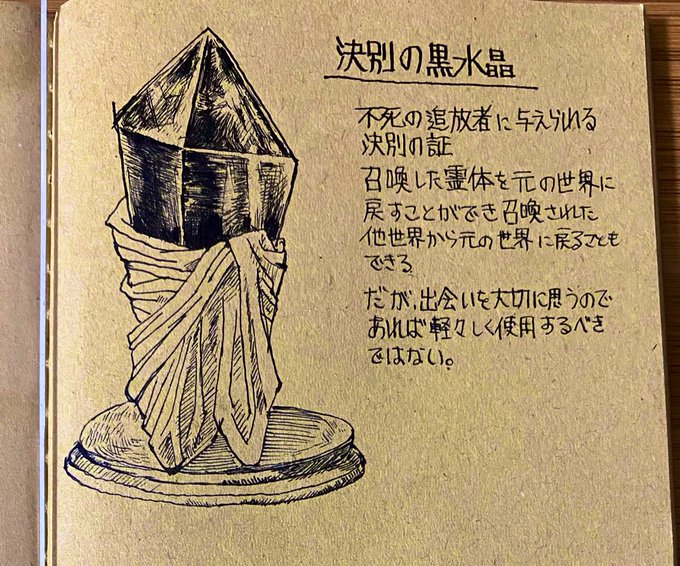 決別の黒水晶
不死の追放者に与えられる
決別の証
召喚した霊体を元の世界に
戻すことができ召喚された
他世界から元の世界に戻ることも
できる
だが、出会いを大切に思うので
あれば軽々しく使用するべき
ではない。